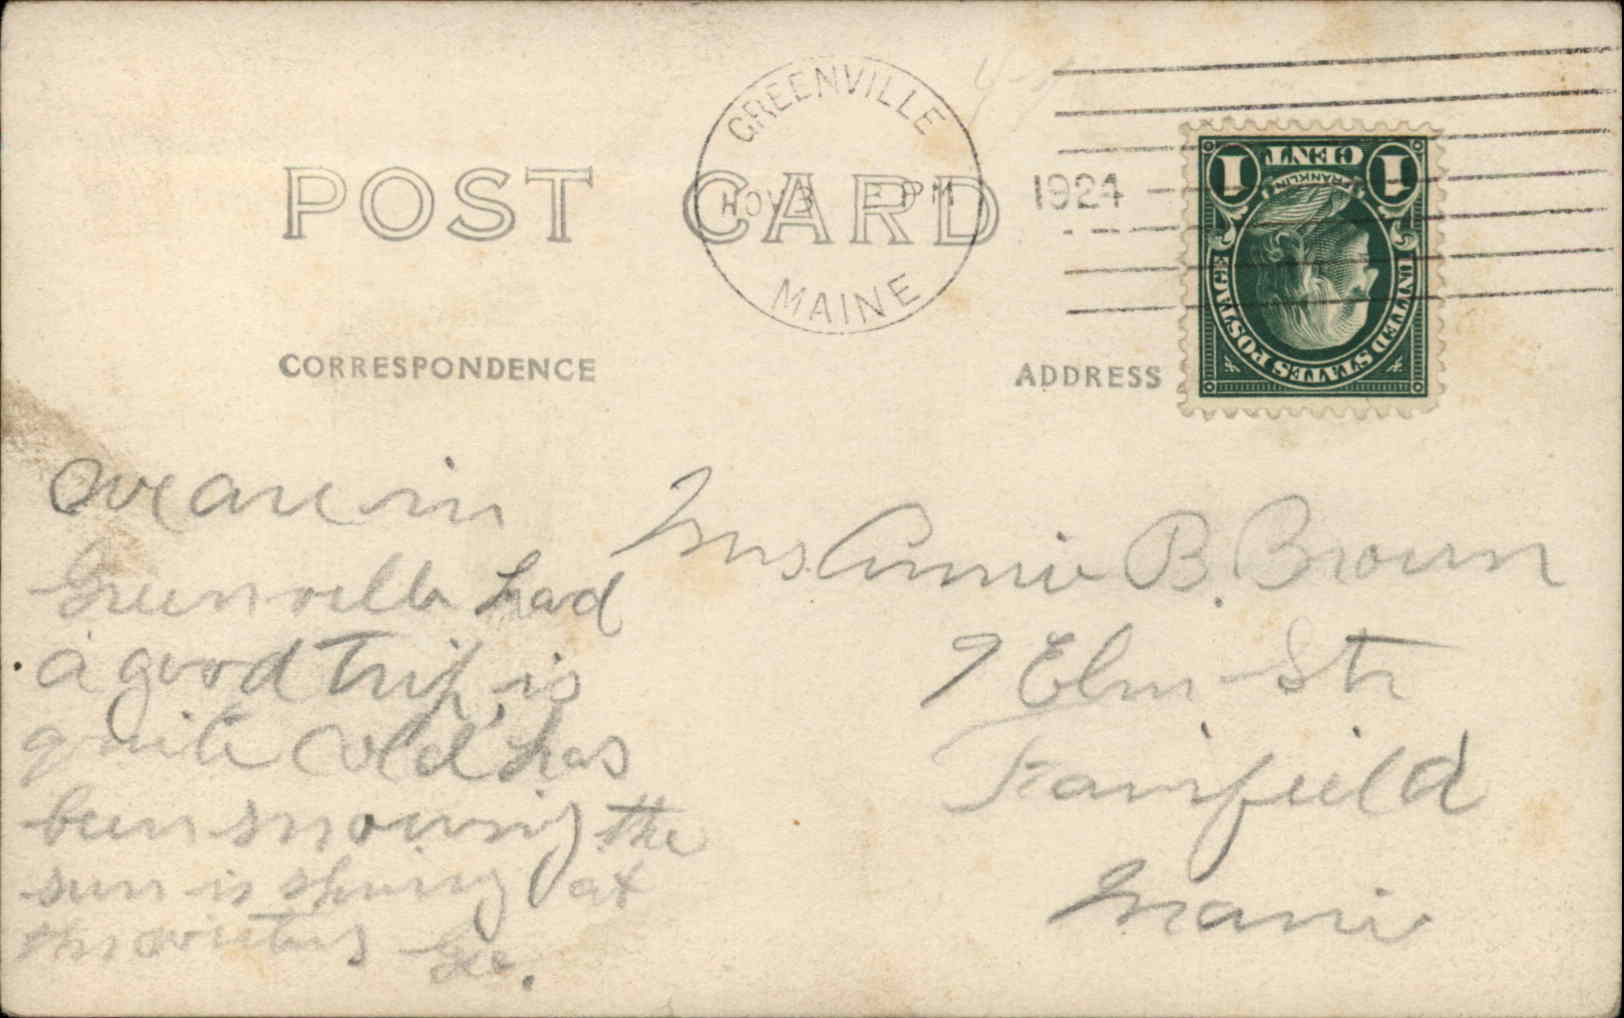 GREENVILLE
NOV 3 PM
1924
MAINE
POST CARD
1 CENT 1
FRANKLIN
UNITED STATES POSTAGE
CORRESPONDENCE
ADDRESS
we are in
Greenville had
a good trip, is
quite cold has
been snowing the
sun is shining at
this writing Geo.
Mrs Annie B. Brown
7 Elm Str
Fairfield
Maine